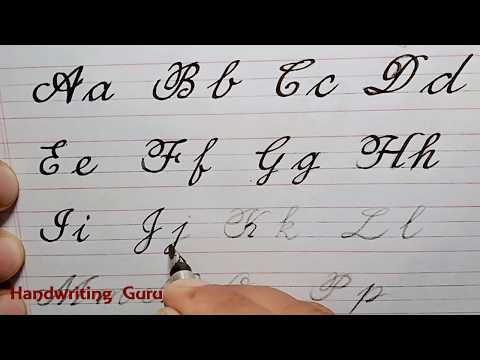 Aa Bb Cc Dd
Ee Ff Gg Hh
Ii Jj Kk Ll
M Pp
Handwriting Guru